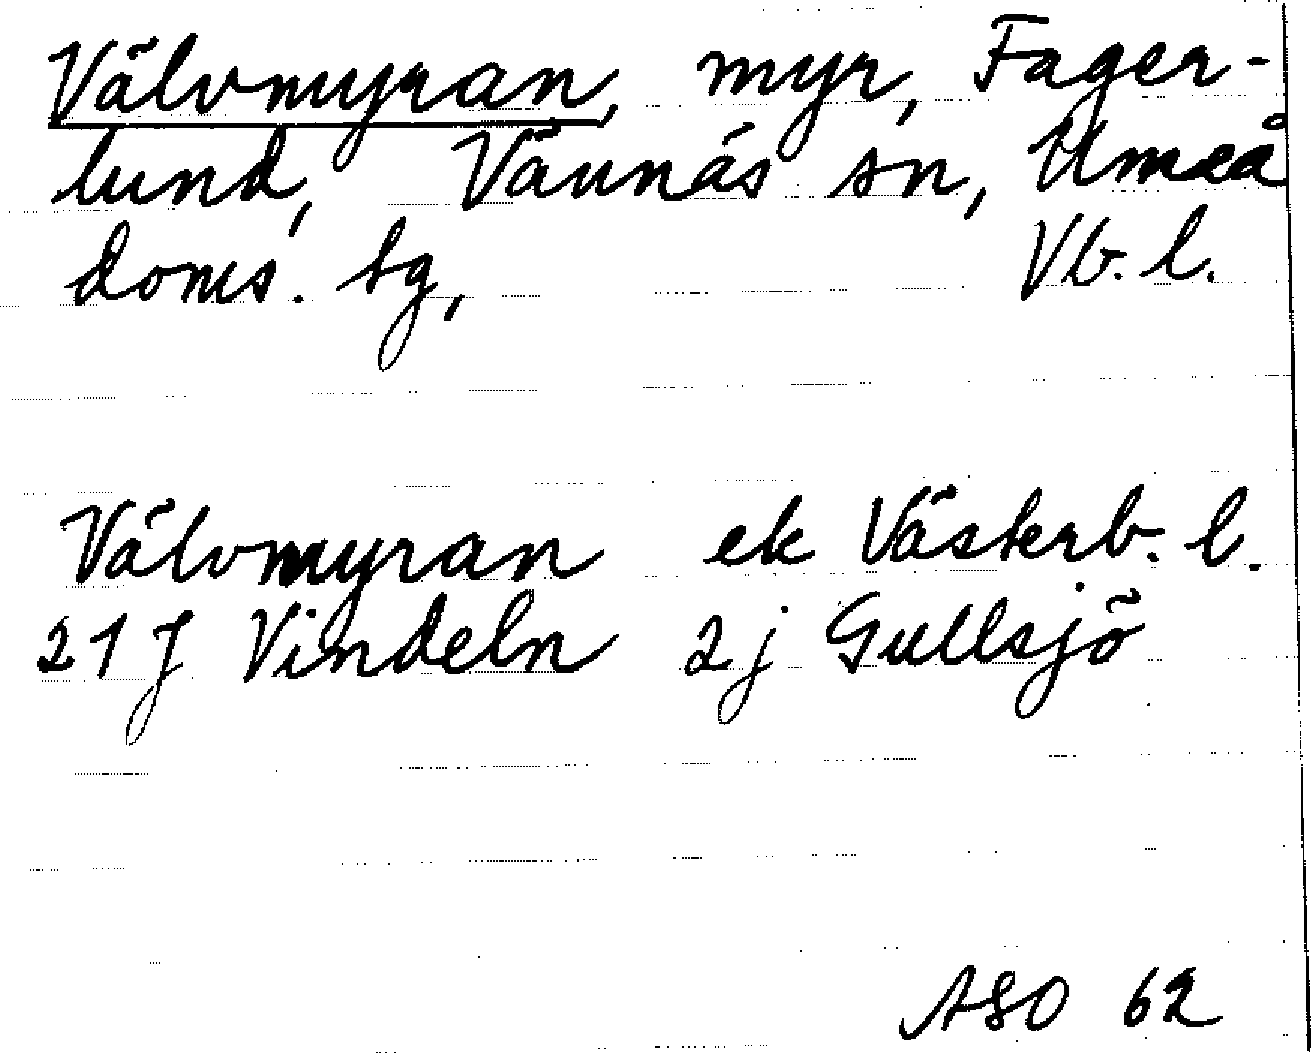 Välvmyran, myr, Fager-
lund, Vännäs sn, Umeå
doms. tg, Vb. l.
Välvmyran ek Västerb. l.
21 J Vindeln 2j Gullsjö
ASO 62